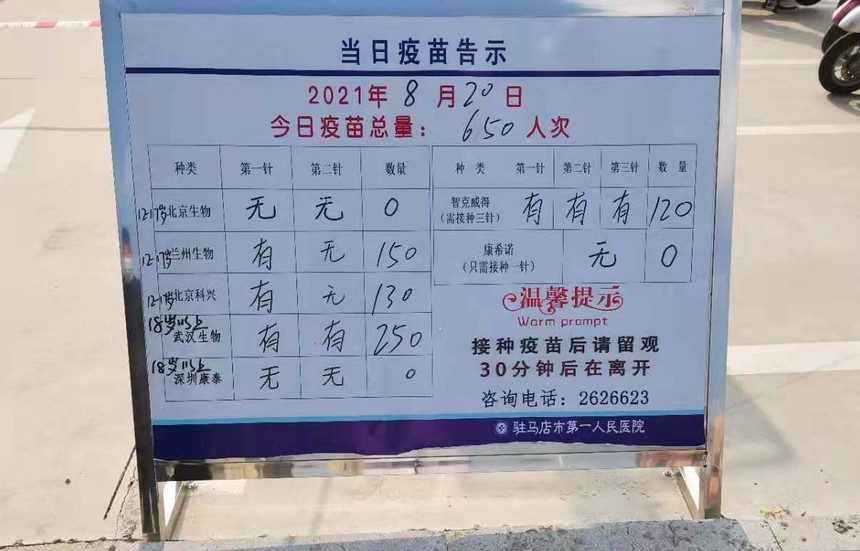 当日疫苗告示
2021年 8 月 20 日
今日疫苗总量： 650 人次
种类 第一针 第二针 数量
12-17岁 北京生物 无 无 0
12-17岁 兰州生物 有 无 150
12-17岁 北京科兴 有 无 130
18岁以上 武汉生物 有 有 250
18岁以上 深圳康泰 无 无 0
种 类 第一针 第二针 第三针 数 量
智克威得
（需接种三针） 有 有 有 120
康希诺
（只需接种一针） 无 0
温馨提示
Warm prompt
接种疫苗后请留观
30分钟后在离开
咨询电话：2626623
驻马店市第一人民医院